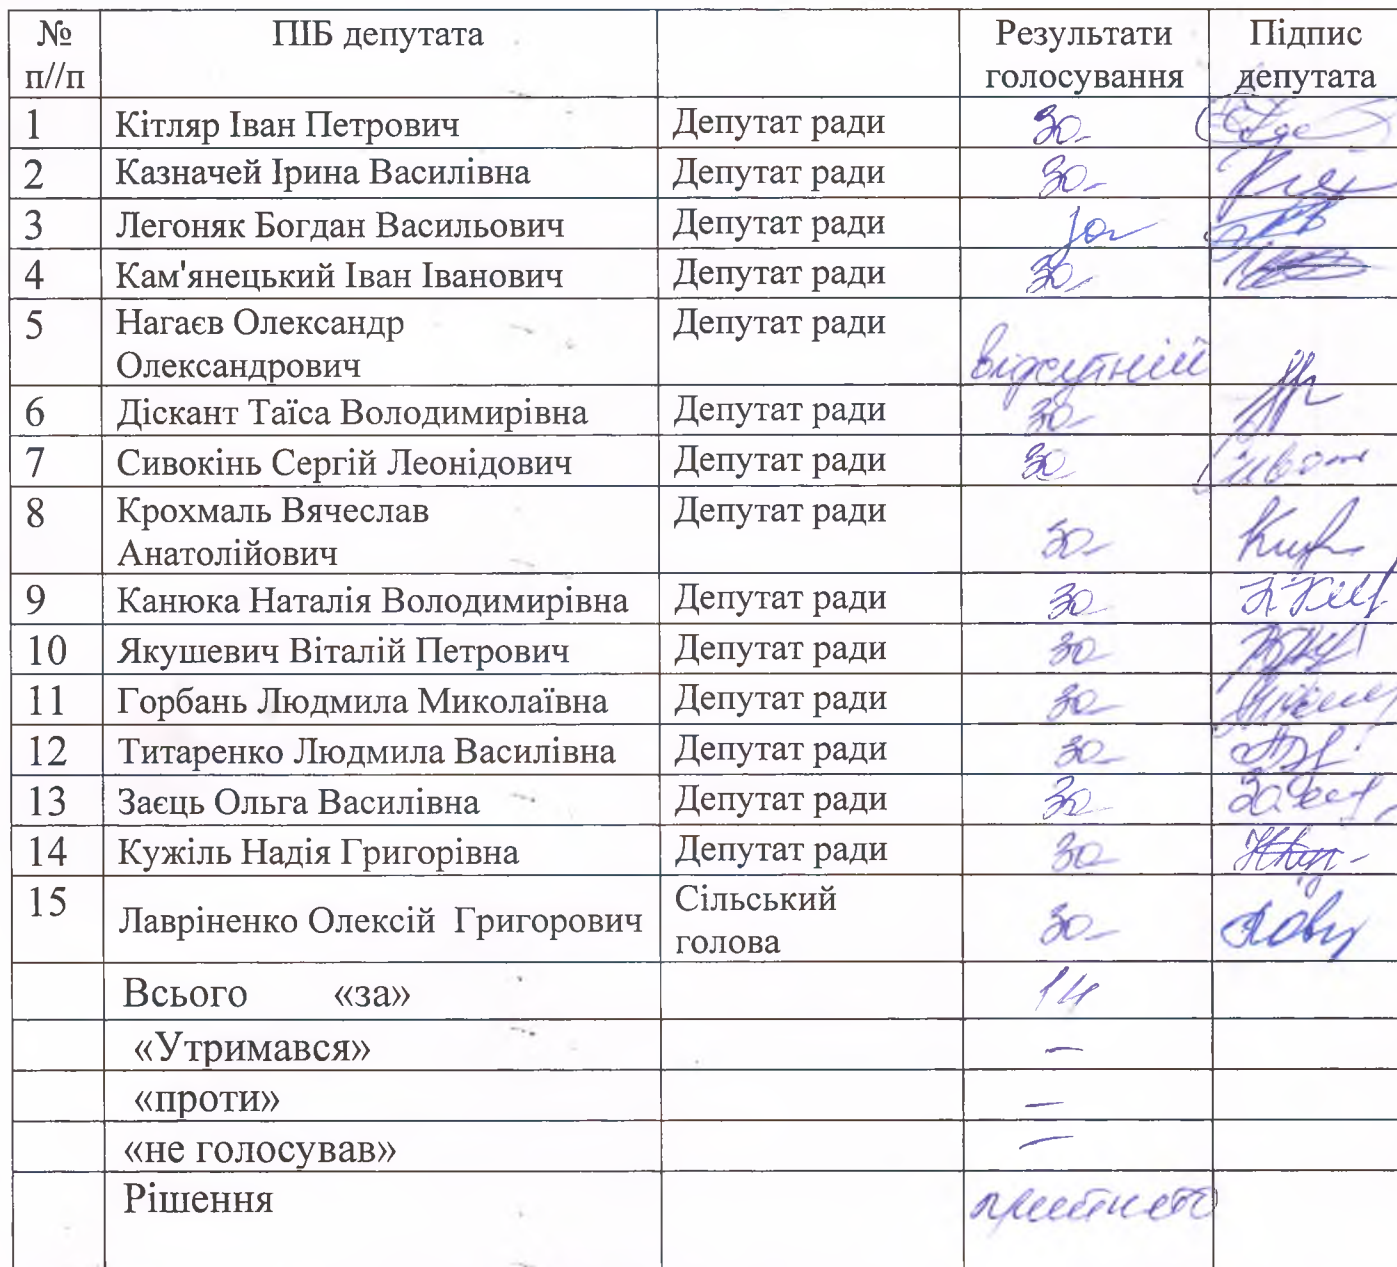 № ПІБ депутата Результати Підпис
п//п голосування депутата
1 Кітляр Іван Петрович Депутат ради За
2 Казначей Ірина Василівна Депутат ради За
3 Легоняк Богдан Васильович Депутат ради За
4 Кам'янецький Іван Іванович Депутат ради За
5 Нагаєв Олександр Депутат ради
Олександрович відсутній
6 Діскант Таїса Володимирівна Депутат ради За
7 Сивокінь Сергій Леонідович Депутат ради За
8 Крохмаль Вячеслав Депутат ради
Анатолійович За
9 Канюка Наталія Володимирівна Депутат ради За
10 Якушевич Віталій Петрович Депутат ради За
11 Горбань Людмила Миколаївна Депутат ради За
12 Титаренко Людмила Василівна Депутат ради За
13 Заєць Ольга Василівна Депутат ради За
14 Кужіль Надія Григорівна Депутат ради За
15 Лавріненко Олексій Григорович Сільський За
голова
Всього «за» 14
«Утримався» –
«проти» –
«не голосував» –
Рішення прийнято